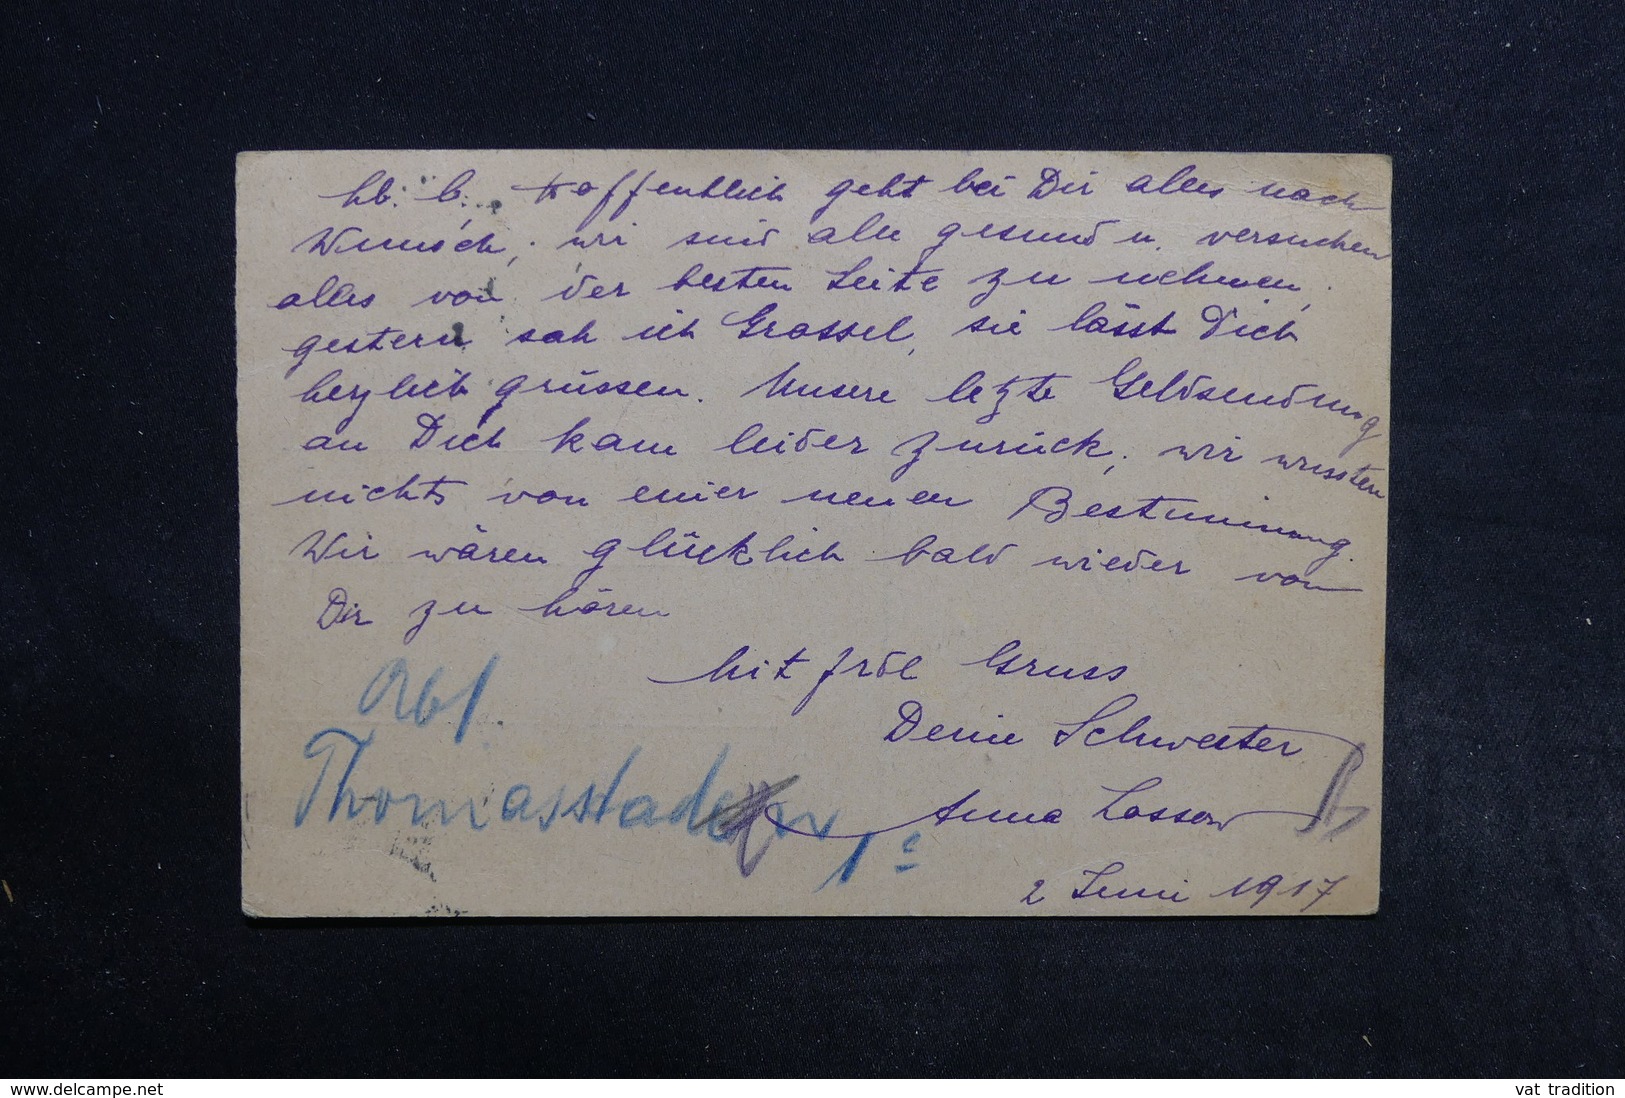 lb. B. Hoffentlich geht bei Dir alles nach
Wunsch, wir sind alle gesund u. versuchen
alles von der besten Seite zu nehmen,
gestern sah ich Grassel, sie lässt Dich
herzlich grüssen. Unsere letzte Geldsendung
an Dich kam leider zurück, wir wussten
nichts von einer neuen Bestimmung.
Wir wären glücklich bald wieder von
Dir zu hören
Mit frdl Gruss
Deine Schwester
Anna Lassow
2 Juni 1917
Abs.
Thomasstader
www.delcampe.net
vat_tradition